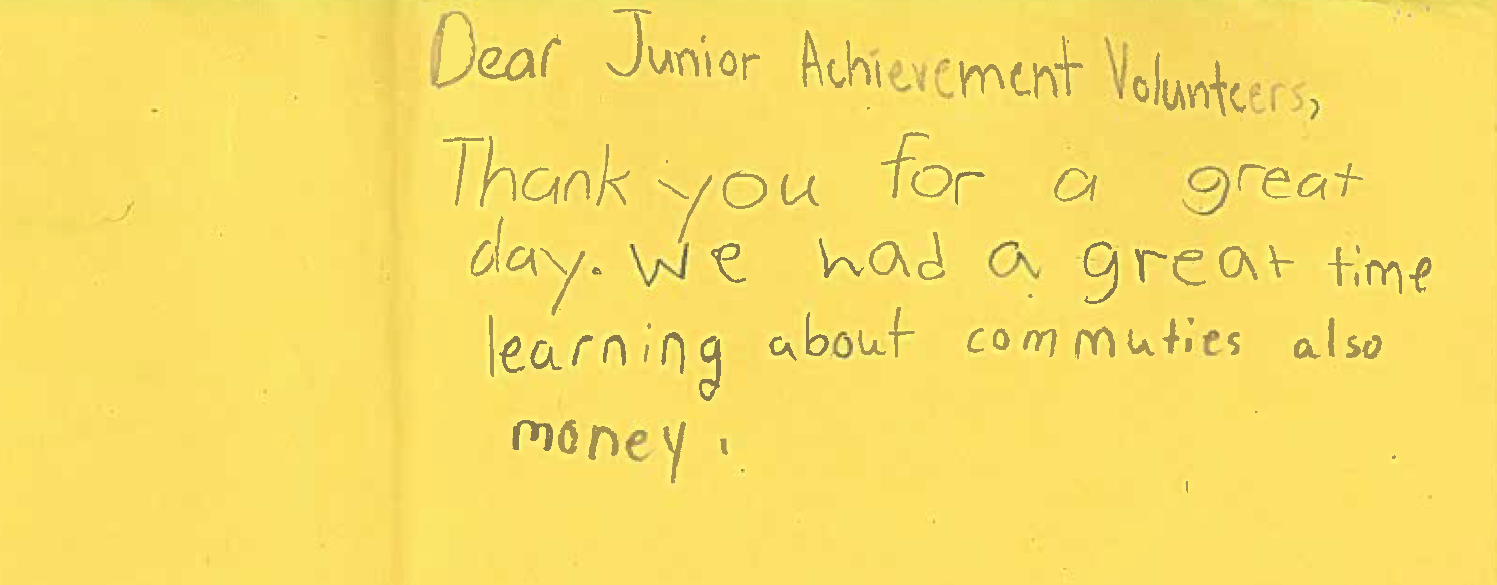 Dear Junior Achievement Volunteers,
Thank you for a great
day. We had a great time
learning about commuties also
money.